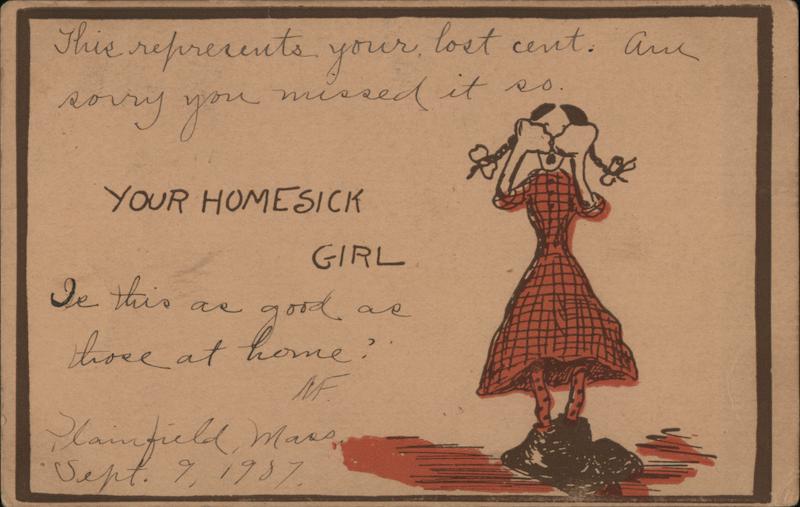 This represents your lost cent. Am
sorry you missed it so.
YOUR HOMESICK
GIRL
Is this as good as
those at home?
NF.
Plainfield, Mass.
Sept. 9, 1907.